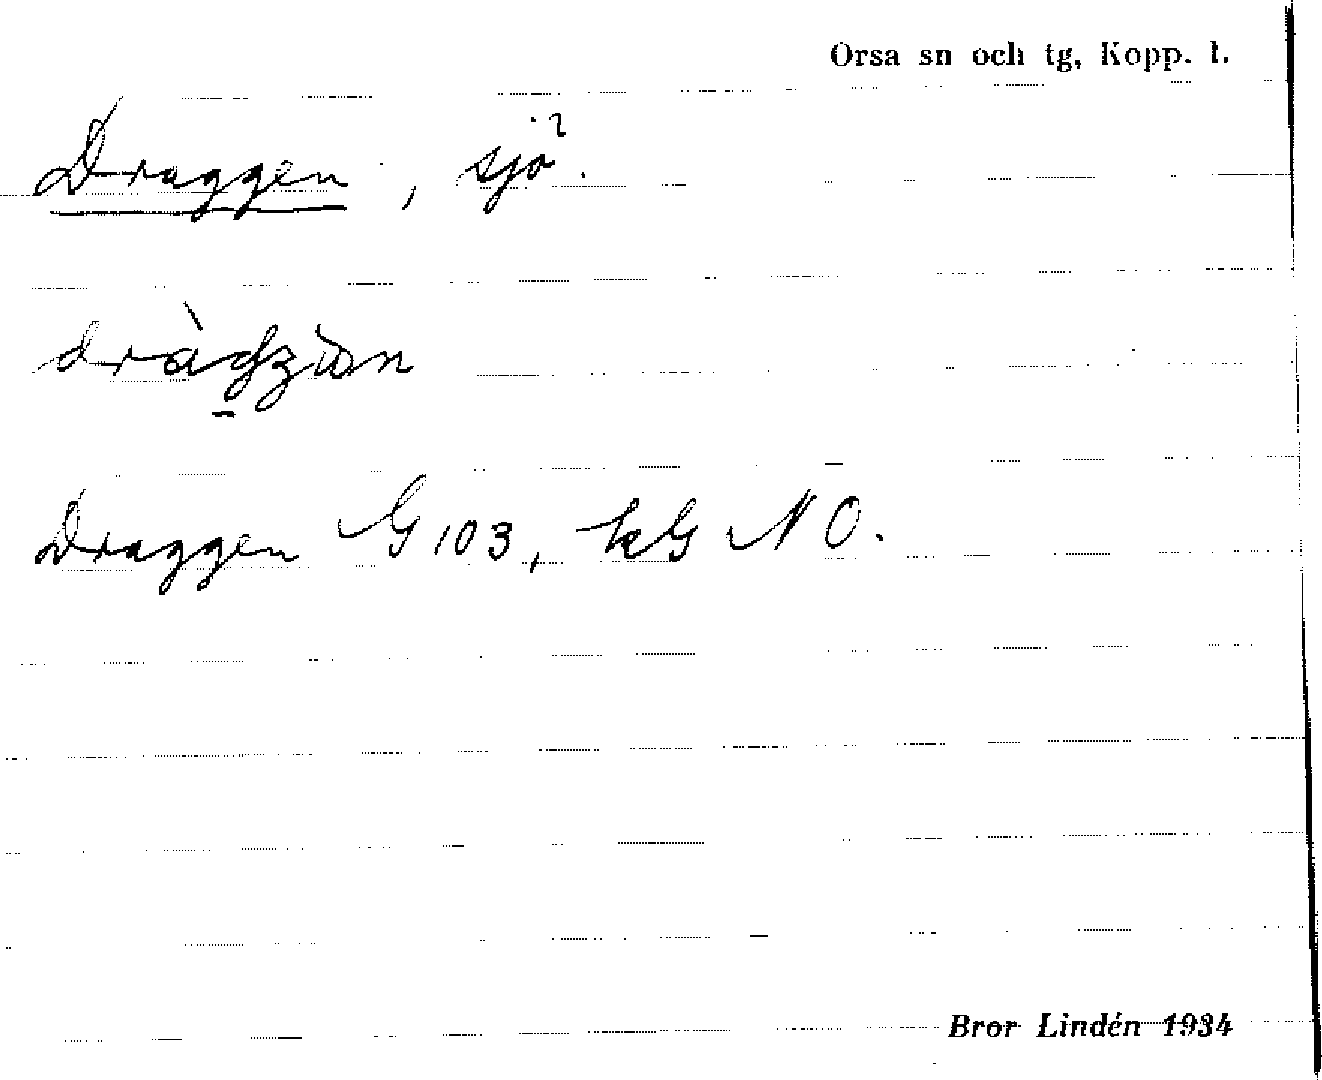 Orsa sn och tg, Kopp. l.
Draggen, sjö.
Draggen G 103, kG NO.
Bror Lindén 1934